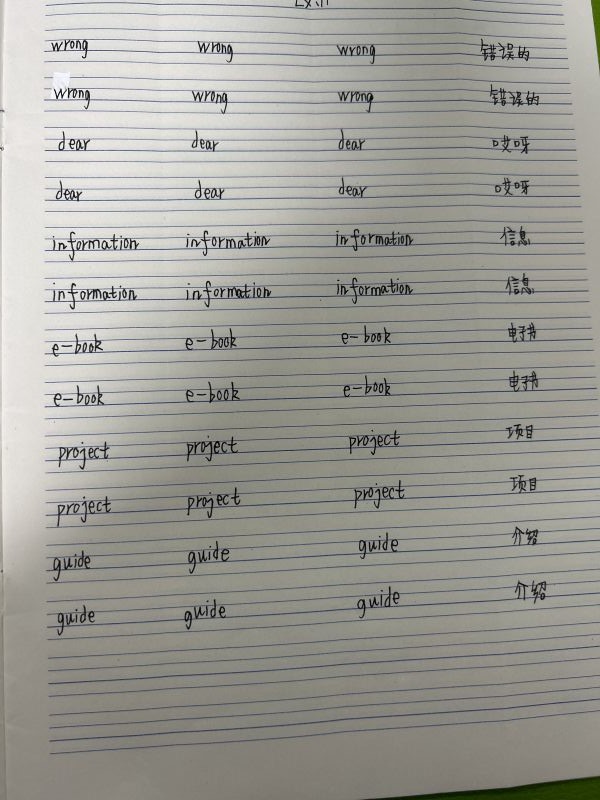 wrong wrong wrong 错误的
wrong wrong wrong 错误的
dear dear dear 哎呀
dear dear dear 哎呀
information information information 信息
information information information 信息
e-book e-book e-book 电子书
e-book e-book e-book 电子书
project project project 项目
project project project 项目
guide guide guide 介绍
guide guide guide 介绍